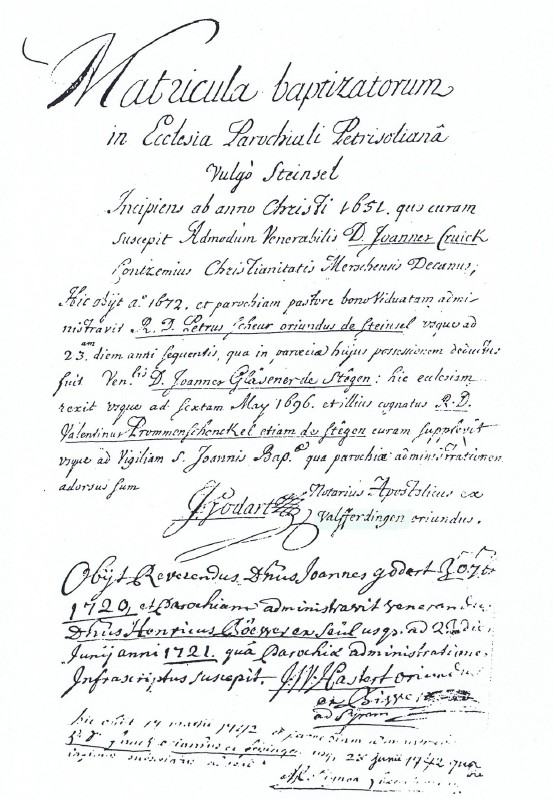 Matricula baptizatorum
in Ecclesia Parochiali Petrisolianâ
Vulgò Steinsel
Incipiens ab anno Christi 1651. quo curam
suscepit Admodùm Venerabilis D. Joannes Cruick
Contzemius Christianitatis Merschensis Decanus;
Hic obijt aº. 1672. et parochiam pastore bono Viduatam admi-
nistravit R. D. Petrus Scheur oriundus de Steinsel usque ad
23.am diem anni sequentis, qua in parœciæ hujus possessionem deductus
fuit Ven.lis D. Joannes Glasener de Stêgen: hic ecclesiam
rexit usque ad sextam May 1696. et illius cognatus R. D.
Valentinus Prommenschenckel etiam de Stêgen curam supplevit
usque ad Vigiliam S. Joannis Bap.ᵉ qua parochiæ administrationem
adorsus sum
J. Godart Notarius Apostolicus ex
Valfferdingen oriundus.
Obijt Reverendus Dñus Joannes godart 7bris
1720, et Parochiam administravit venerandus
Dñus Henricus Böewer en Seül usq. ad
Junij anni 1721. quâ Parochiæ administrationem
Infrascriptus suscepit. Hastert oriundus
ex
ad Syram
hic obiit 14 martii 1742 et parochiam
25 junii 1742